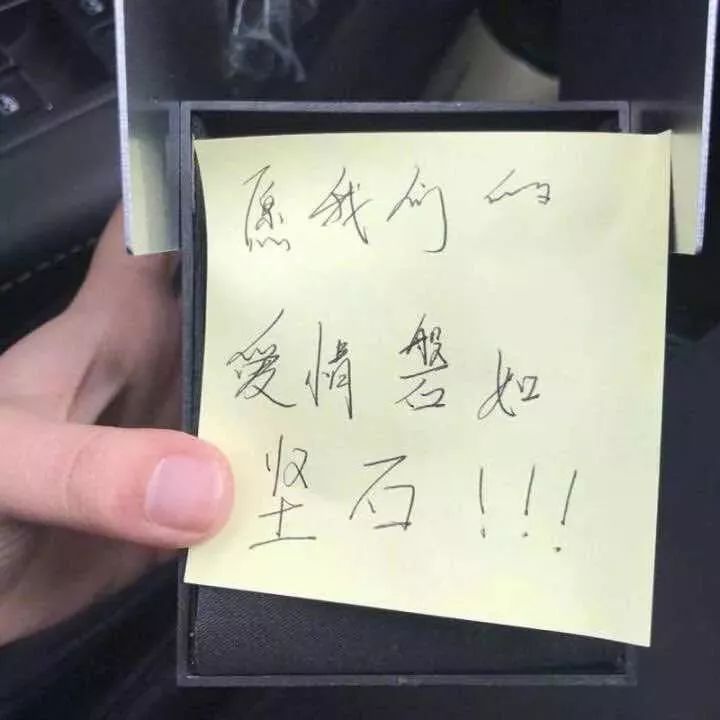 愿我们的
爱情磐如
坚石!!!